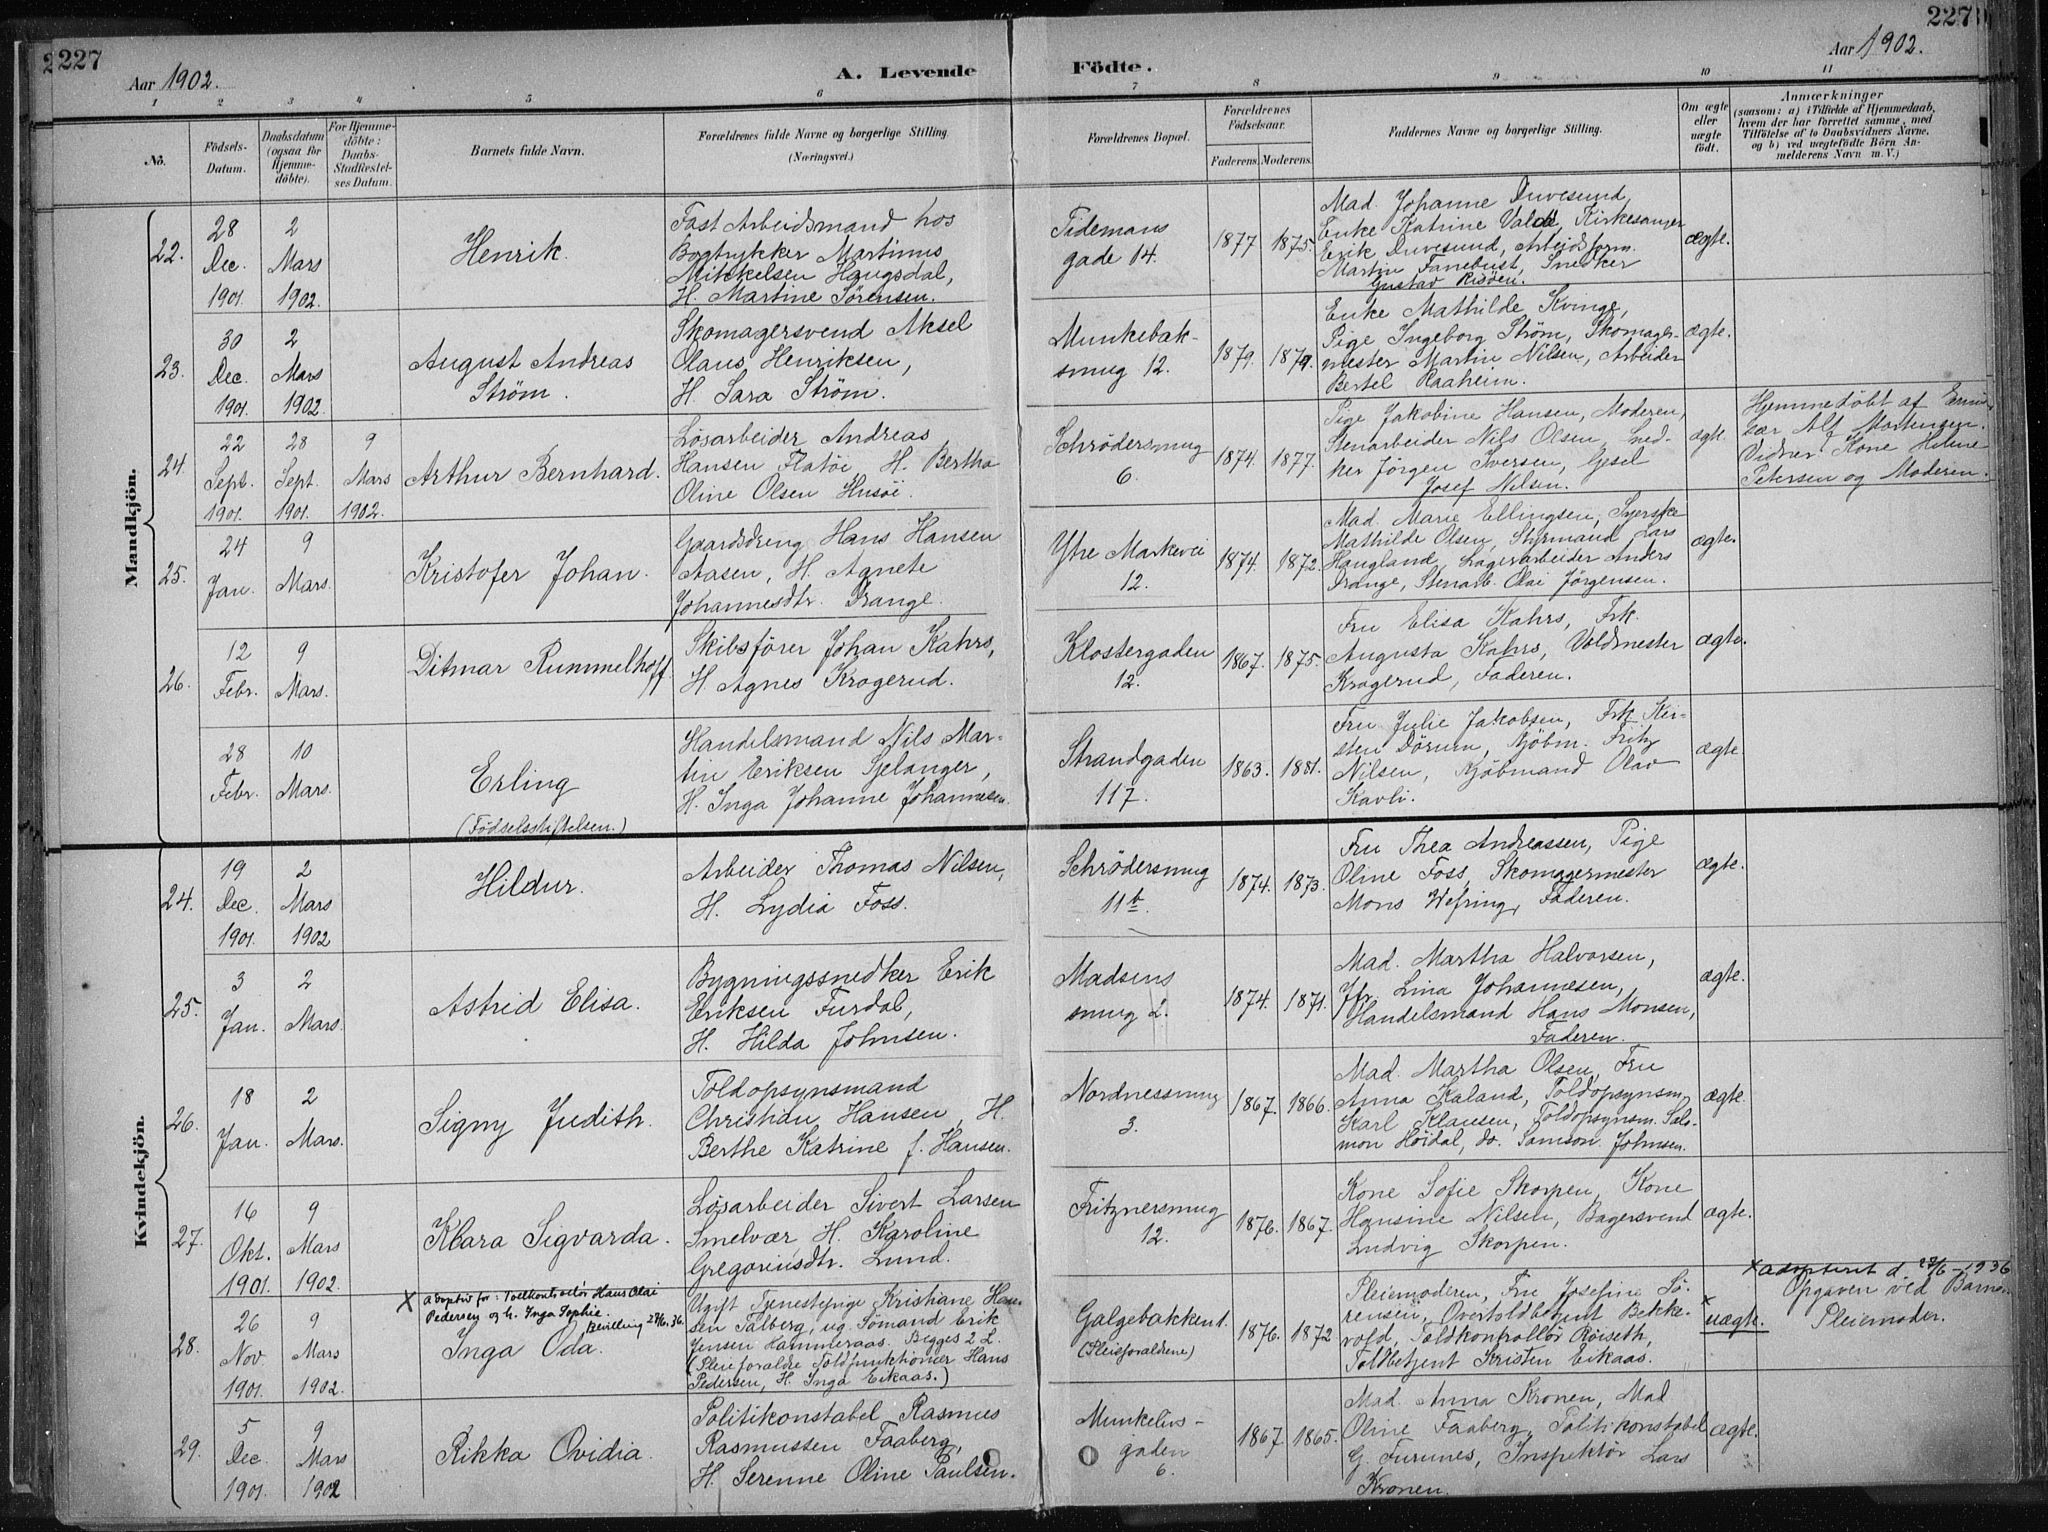 227
Aar 1902.
A. Levende Födte.
Aar 1902.
227
1 2 3 4 5 6 7 8 9 10 11
No.
Fødsels-Datum.
Daabsdatum (ogsaa for Hjemme-döbte).
For Hjemme-döbte: Daabs-Stadfæstel-ses Datum.
Barnets fulde Navn.
Forældrenes fulde Navne og borgerlige Stilling. (Næringsvei.)
Forældrenes Bopæl.
Forældrenes Födselsaar.
Faderens. Moderens.
Faddernes Navne og borgerlige Stilling.
Om ægte eller uægte födt.
Anmærkninger
(saasom: a) i Tilfælde af Hjemmedaab,
hvem der har forrettet samme, med
Tilföielse af to Daabsvidners Navne,
og b) ved uægtefödte Börn An-
melderens Navn m. V.)
Mandkjön.
22.
28 Dec. 1901.
2 Mars 1902.
Henrik.
Fast Arbeidsmand hos
Bogtrykker Martinus
Mikkelsen Haugsdal,
H. Martine Sørensen.
Tidemans
gade 14.
1877 1875.
Mad. Johanne Duvesund,
Enke Katrine Valde, Kirkesanger
Erik Duvesund, Arbeidsform.
Martin Fanebust, Snedker
Gustav Risöen.
ægte.
23.
30 Dec. 1901.
2 Mars 1902.
August Andreas
Strøm.
Skomagersvend Aksel
Olaus Henriksen,
H. Sara Strøm.
Munkebak-
smug 12.
1879. 1879.
Enke Mathilde Kvinge,
Pige Ingeborg Strøm, Skomager-
mester Martin Nilsen, Arbeider
Bertel Raaheim.
ægte.
24.
22 Sept. 1901.
28 Sept. 1901.
9 Mars 1902.
Arthur Bernhard.
Løsarbeider Andreas
Hansen Flatöe, H. Bertha
Oline Olsen Husöi.
Schrödersmug
6.
1874. 1877.
Pige Jakobine Hansen, Moderen,
Stenarbeider Nils Olsen, Sned-
ker Jørgen Iversen, Gjesel
Josef Nilsen.
ægte.
Hjemmedøbt af Emis-
sær Alf Mortensen.
Vidner Kone Helene
Petersen og Moderen.
25.
24 Jan.
9 Mars.
Kristofer Johan.
Gaardsdreng Hans Hansen
Aasen, H. Agnete
Johannesdtr. Drange.
Ytre Markevei
12.
1874. 1872.
Mad. Marie Ellingsen, Syerske
Mathilde Olsen, Styrmand Lars
Haugland, Lagerarbeider Anders
Drange, Stenarb. Olai Jørgensen.
ægte.
26.
12 Febr.
9 Mars.
Ditmar Rummelhoff.
Skibsfører Johan Kahrs,
H. Agnes Krogerud.
Klostergaden
12.
1867. 1875.
Fru Elisa Kahrs, Frk.
Augusta Kahrs, Voldmester
Krogerud, Faderen.
ægte.
28 Febr.
10 Mars.
Erling
(Födselsstiftelsen.)
Handelsmand Nils Mar-
tin Eriksen Sjelanger,
H. Inga Johanne Johannesen.
Strandgaden
117.
1863. 1881.
Fru Julie Jakobsen, Frk. Kir-
sten Dörum, Kjöbm. Fritz
Nilsen, Kjöbmand Olav
Kavli.
ægte
Kvindekjön.
24.
19 Dec. 1901.
2 Mars 1902
Hildur.
Arbeider Thomas Nilsen,
H. Lydia Foss.
Schrödersmug
11b.
1874. 1873.
Fru Thea Andreassen, Pige
Oline Foss, Skomagermester
Mons Wefring, Faderen.
ægte.
25.
3 Jan.
2 Mars.
Astrid Elisa.
Bygningssnedker Erik
Eriksen Furdal,
H. Hilda Johnsen.
Madsens
smug 2.
1874. 1871.
Mad. Martha Halvorsen,
Jfr. Lina Johannesen,
Handelsmand Hans Monsen,
Faderen.
ægte.
26.
18 Jan.
2 Mars.
Signy Judith.
Toldopsynsmand
Christian Hansen, H.
Berthe Katrine f. Hansen.
Nordnessmug
3.
1867. 1866.
Mad. Martha Olsen, Fru
Anna Kaland, Toldopsynsm.
Karl Klausen, Toldopsynsm. Salo-
mon Höidal, do. Samson Johnsen.
ægte.
27.
16 Okt. 1901.
9 Mars 1902.
Klara Sigvarda.
Løsarbeider Sivert Larsen
Smelvær H. Karoline
Gregoriusdtr. Lund.
Fritznersmug
12.
1876. 1867.
Kone Sofie Skorpen, Kone
Hansine Nilsen, Bagersvend
Ludvig Skorpen.
ægte.
28.
26 Nov. 1901.
9 Mars 1902.
× adoptiv for: Tollkontrolør Hans Olai
Pedersen og h. Inga Sophie.
Bevilling 27/6.36.
Inga Oda.
Ugift Tjenestepige Kristiane Han-
sen Talberg, ug. Sömand Erik
Jensen Hammeraas. Begges 2 L.
(Pleieforældre Toldfunktionær Hans
Pedersen, H. Inga Eikaas.)
Galgebakken 1.
(Pleieforældrene)
1876. 1872
Pleiemoderen, Fru Josefine Sö-
rensen, Overtoldbetjent Bekke-
vold, Toldkontrollör Röiseth,
Toldbetjent Kristen Eikaas.
× uægte.
× adopteret d. 27/6-1936
Opgaven ved Barnets
Pleiemoder.
29.
5 Dec. 1901.
9 Mars 1902
Rikka Ovidia.
Politikonstabel Rasmus
Rasmussen Faaberg,
H. Serenne Oline Paulsen.
Munkelivs-
gaden
6.
1867. 1865.
Mad. Anna Kronen, Mad
Oline Faaberg, Politikonstabel
G. Furunes, Inspektør Lars
Kronen.
ægte.